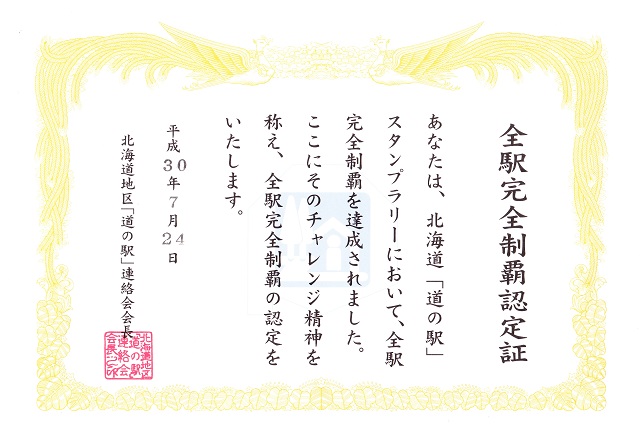 全駅完全制覇認定証
あなたは、北海道「道の駅」
スタンプラリーにおいて、全駅
完全制覇を達成されました。
ここにそのチャレンジ精神を
称え、全駅完全制覇の認定を
いたします。
平成30年7月24日
北海道地区「道の駅」連絡会会長
北海道地区
「道の駅」
連絡会